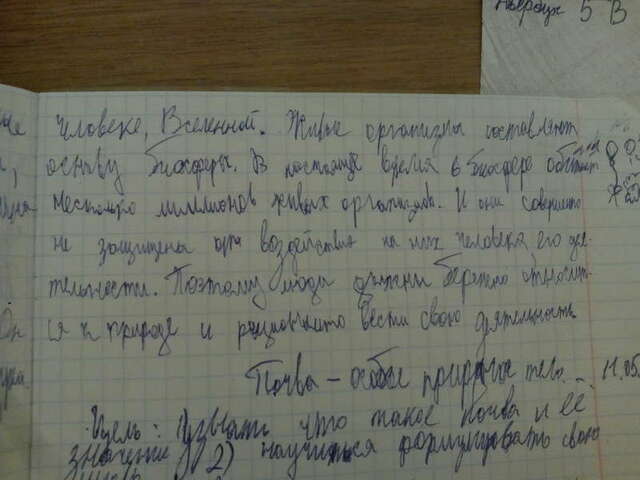 5 В
человеке, Вселенной. Живые организмы составляют
основу биосферы. В настоящее время в биосфере обитает
несколько миллионов живых организмов. И они совершенно
не защищены от воздействия на них человека его дея-
тельности. Поэтому люди должны бережно относит-
ся к природе и рационально вести свою деятельность.
Почва – особое природное тело. 11.05.
Цель: 1) узнать что такое почва и её
значение 2) научиться формулировать свою